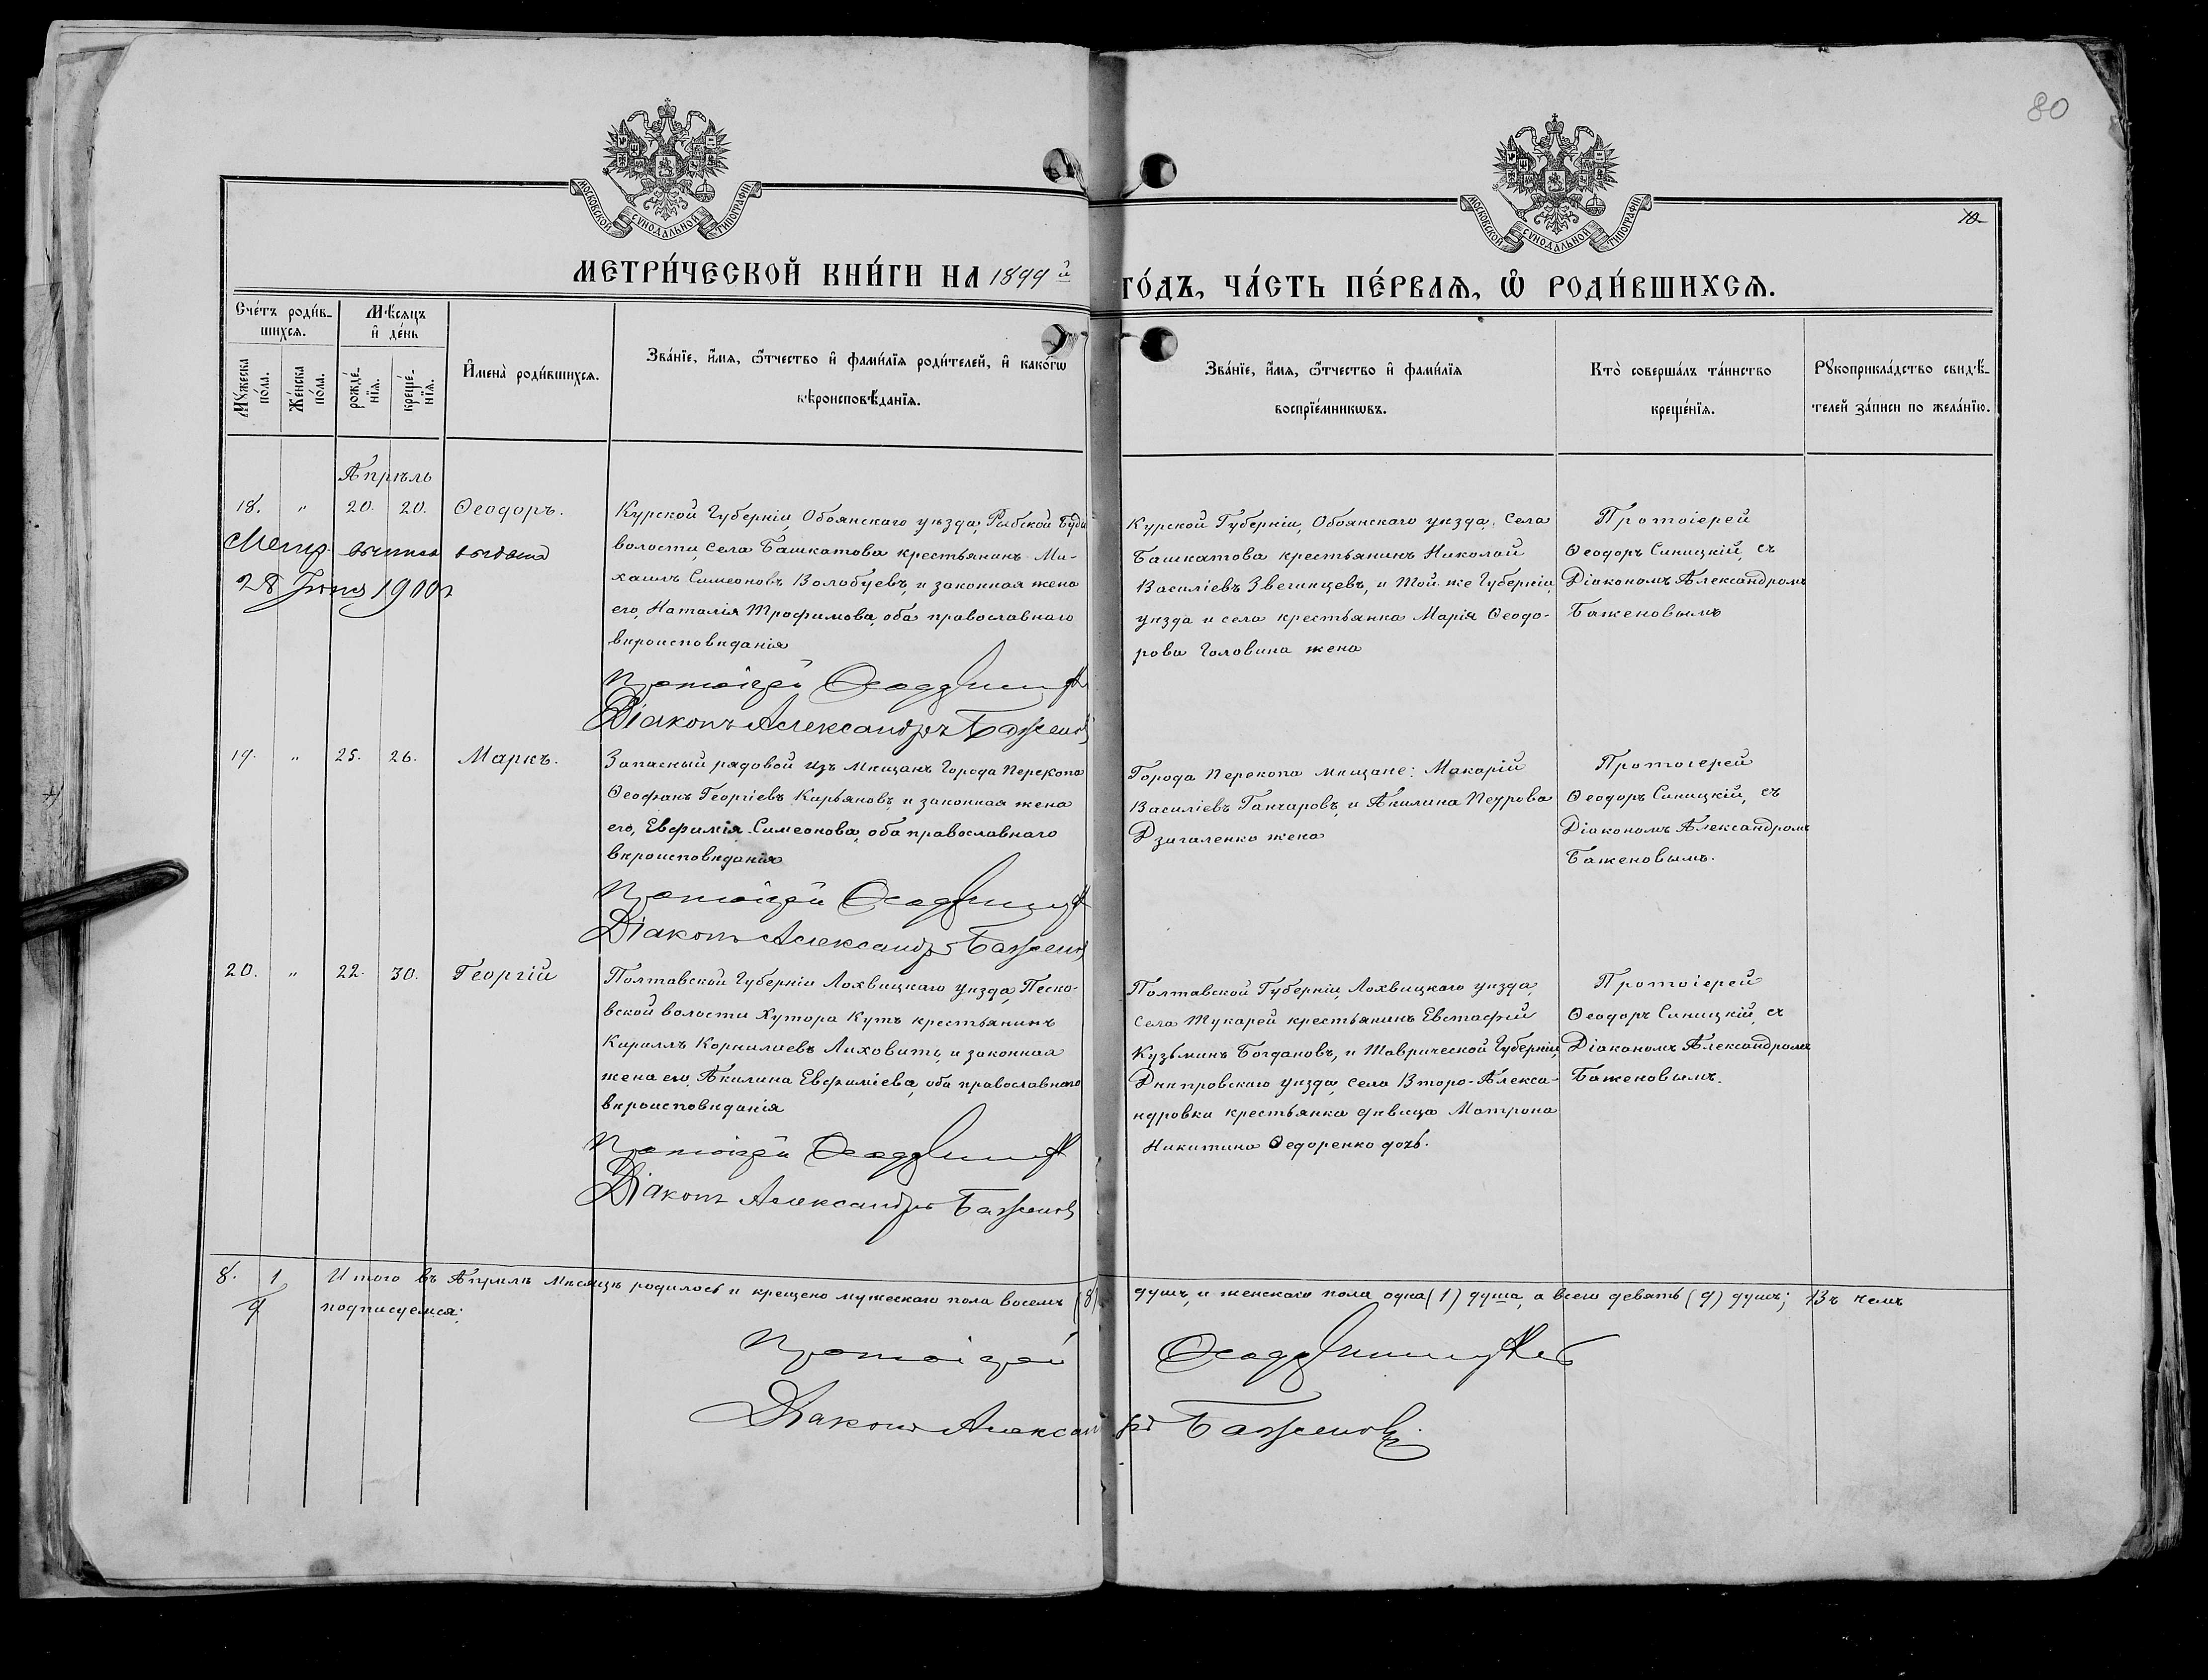 80
МОСКОВСКОЙ СѴНОДАЛЬНОЙ ТИПОГРАФІИ
МОСКОВСКОЙ СѴНОДАЛЬНОЙ ТИПОГРАФІИ
МЕТРИ́ЧЕСКОЙ КНИ́ГИ НА 1899й ГО́ДЪ, ЧА́СТЬ ПЕ́РВАЯ, Ѡ РОДИ́ВШИХСЯ.
Сче́тъ роди́в-
шихся.
Мѣсяцъ
и де́нь
Мꙋ́жеска
по́ла.
Же́нска
по́ла.
рожде́-
нїя.
креще́-
нїя.
И҆мена̀ роди́вшихся.
Зва́нїе, и҆́мя, ѻ҆́тчество и҆ фами́лїя роди́телей, и҆ како́гѡ
вѣроисповѣ́данїя.
Зва́нїе, и҆́мя, ѻ҆́тчество и҆ фами́лїя
воспрїе́мникѡвъ.
Кто̀ соверша́лъ та́инство
креще́нїя.
Рꙋкоприкла́дство свидѣ́-
телей за́писи по жела́нїю.
Апрѣль
18. " 20. 20. Ѳеодоръ.
Метр. выпись выдана
28 Іюня 1900 г
Курской Губерніи, Обоянскаго уѣзда, Рыбской Буды
волости села Башкатова крестьянинъ Ми-
хаилъ Симеоновъ Волобуевъ, и законная жена
его, Наталія Трофимова, оба православнаго
вѣроисповѣданія
Протоіерей Ѳеодоръ Синицкій
Діаконъ Александръ Баженовъ
Курской Губерніи, Обоянскаго уѣзда, села
Башкатова крестьянинъ Николай
Василіевъ Звегинцевъ, и той же Губерніи,
уѣзда и села крестьянка Марія Ѳеодо-
рова Головина жена
Протоіерей
Ѳеодоръ Синицкій, съ
Діакономъ Александромъ
Баженовымъ
19. " 25. 26. Маркъ.
Запасный рядовой изъ мѣщанъ города Перекопа
Ѳеофанъ Георгіевъ Кирьяновъ, и законная жена
его, Евфимія Симеонова, оба православнаго
вѣроисповѣданія
Протоіерей Ѳеодоръ Синицкій
Діаконъ Александръ Баженовъ
Города Перекопа мѣщане: Макарій
Василіевъ Ганчаровъ, и Акилина Петрова
Дзигаленко жена
Протоіерей
Ѳеодоръ Синицкій, съ
Діакономъ Александромъ
Баженовымъ.
20. " 22. 30. Георгій
Полтавской Губерніи Лохвицкаго уѣзда, Песко-
вской волости хутора Кутъ крестьянинъ
Кириллъ Корнилиевъ Лиховитъ, и законная
жена его, Акилина Евфиміева, оба православнаго
вѣроисповѣданія
Протоіерей Ѳеодоръ Синицкій
Діаконъ Александръ Баженовъ
Полтавской Губерніи, Лохвицкаго уѣзда,
села Тукарей крестьянинъ Евстафій
Кузьминъ Богдановъ, и Таврической Губерніи,
Днѣпровскаго уѣзда, села Второ-Алекса-
ндровки крестьянка дѣвица Матрона
Никитина Ѳедоренко дочь.
Протоіерей
Ѳеодоръ Синицкій, съ
Діакономъ Александромъ
Баженовымъ.
8. 1 Итого въ Апрѣлѣ мѣсяцѣ родилось и крещено мужескаго пола восемь (8) душъ, и женскаго пола одна (1) душа, а всего девять (9) душъ; Въ чемъ
9 подписуемся:
Протоіерей Ѳеодоръ Синицкій
Діаконъ Александръ Баженовъ.